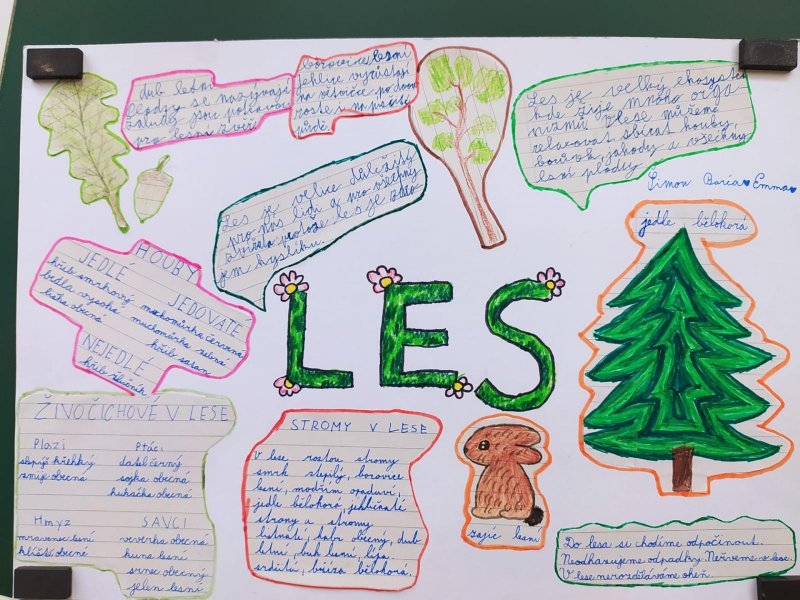 dub letní
Plodzy se nazývají
žaludy jsou potravou
pro lesní zvíř
borovice lesní
jehlice vyrůstají
na větvičce po dvou
roste i na písčité
půdě.
Les je velký ekosysté
kde žije mnoho orga-
nizmů. V lese můžeme
relaxovat sbírat houby,
borův, jahody a všechny
lesní plodzy.
Šimon Daria Emma
Les je velice důležitý
pro nás lidi a pro všechny
zvířata protože les je zdro-
jem kyslíku.
jedle bělokorá
HOUBY
JEDLÉ
hřib smrkový
bedla vysoká
liška obecná
JEDOVATÉ
muchomůrka červená
muchomůrka zelená
hřib satan
NEJEDLÉ
hřib žlučník
LES
ŽIVOČICHOVÉ V LESE
Plazi
slepýš křehký
zmije obecná
Ptáci
datel černý
sojka obecná
kukačka obecná
Hmyz
mravenec lesní
klíště obecné
SAVCI
veverka obecná
kuna lesní
srnec obecný
jelen lesní
STROMY V LESE
V lese rostou stromy
smrk ztepilý, borovice
lesní, modřín opadavý,
jedle bělokorá, jehličnaté
stromy a stromy
listnaté, habr obecný, dub
letní, buk lesní, lípa
srdčitá, bříza bělokorá.
zajíc lesní
Do lesa si chodíme odpočinout.
Neodhazujeme odpadky. Neřveme v lese.
V lese nerozděláváme oheň.